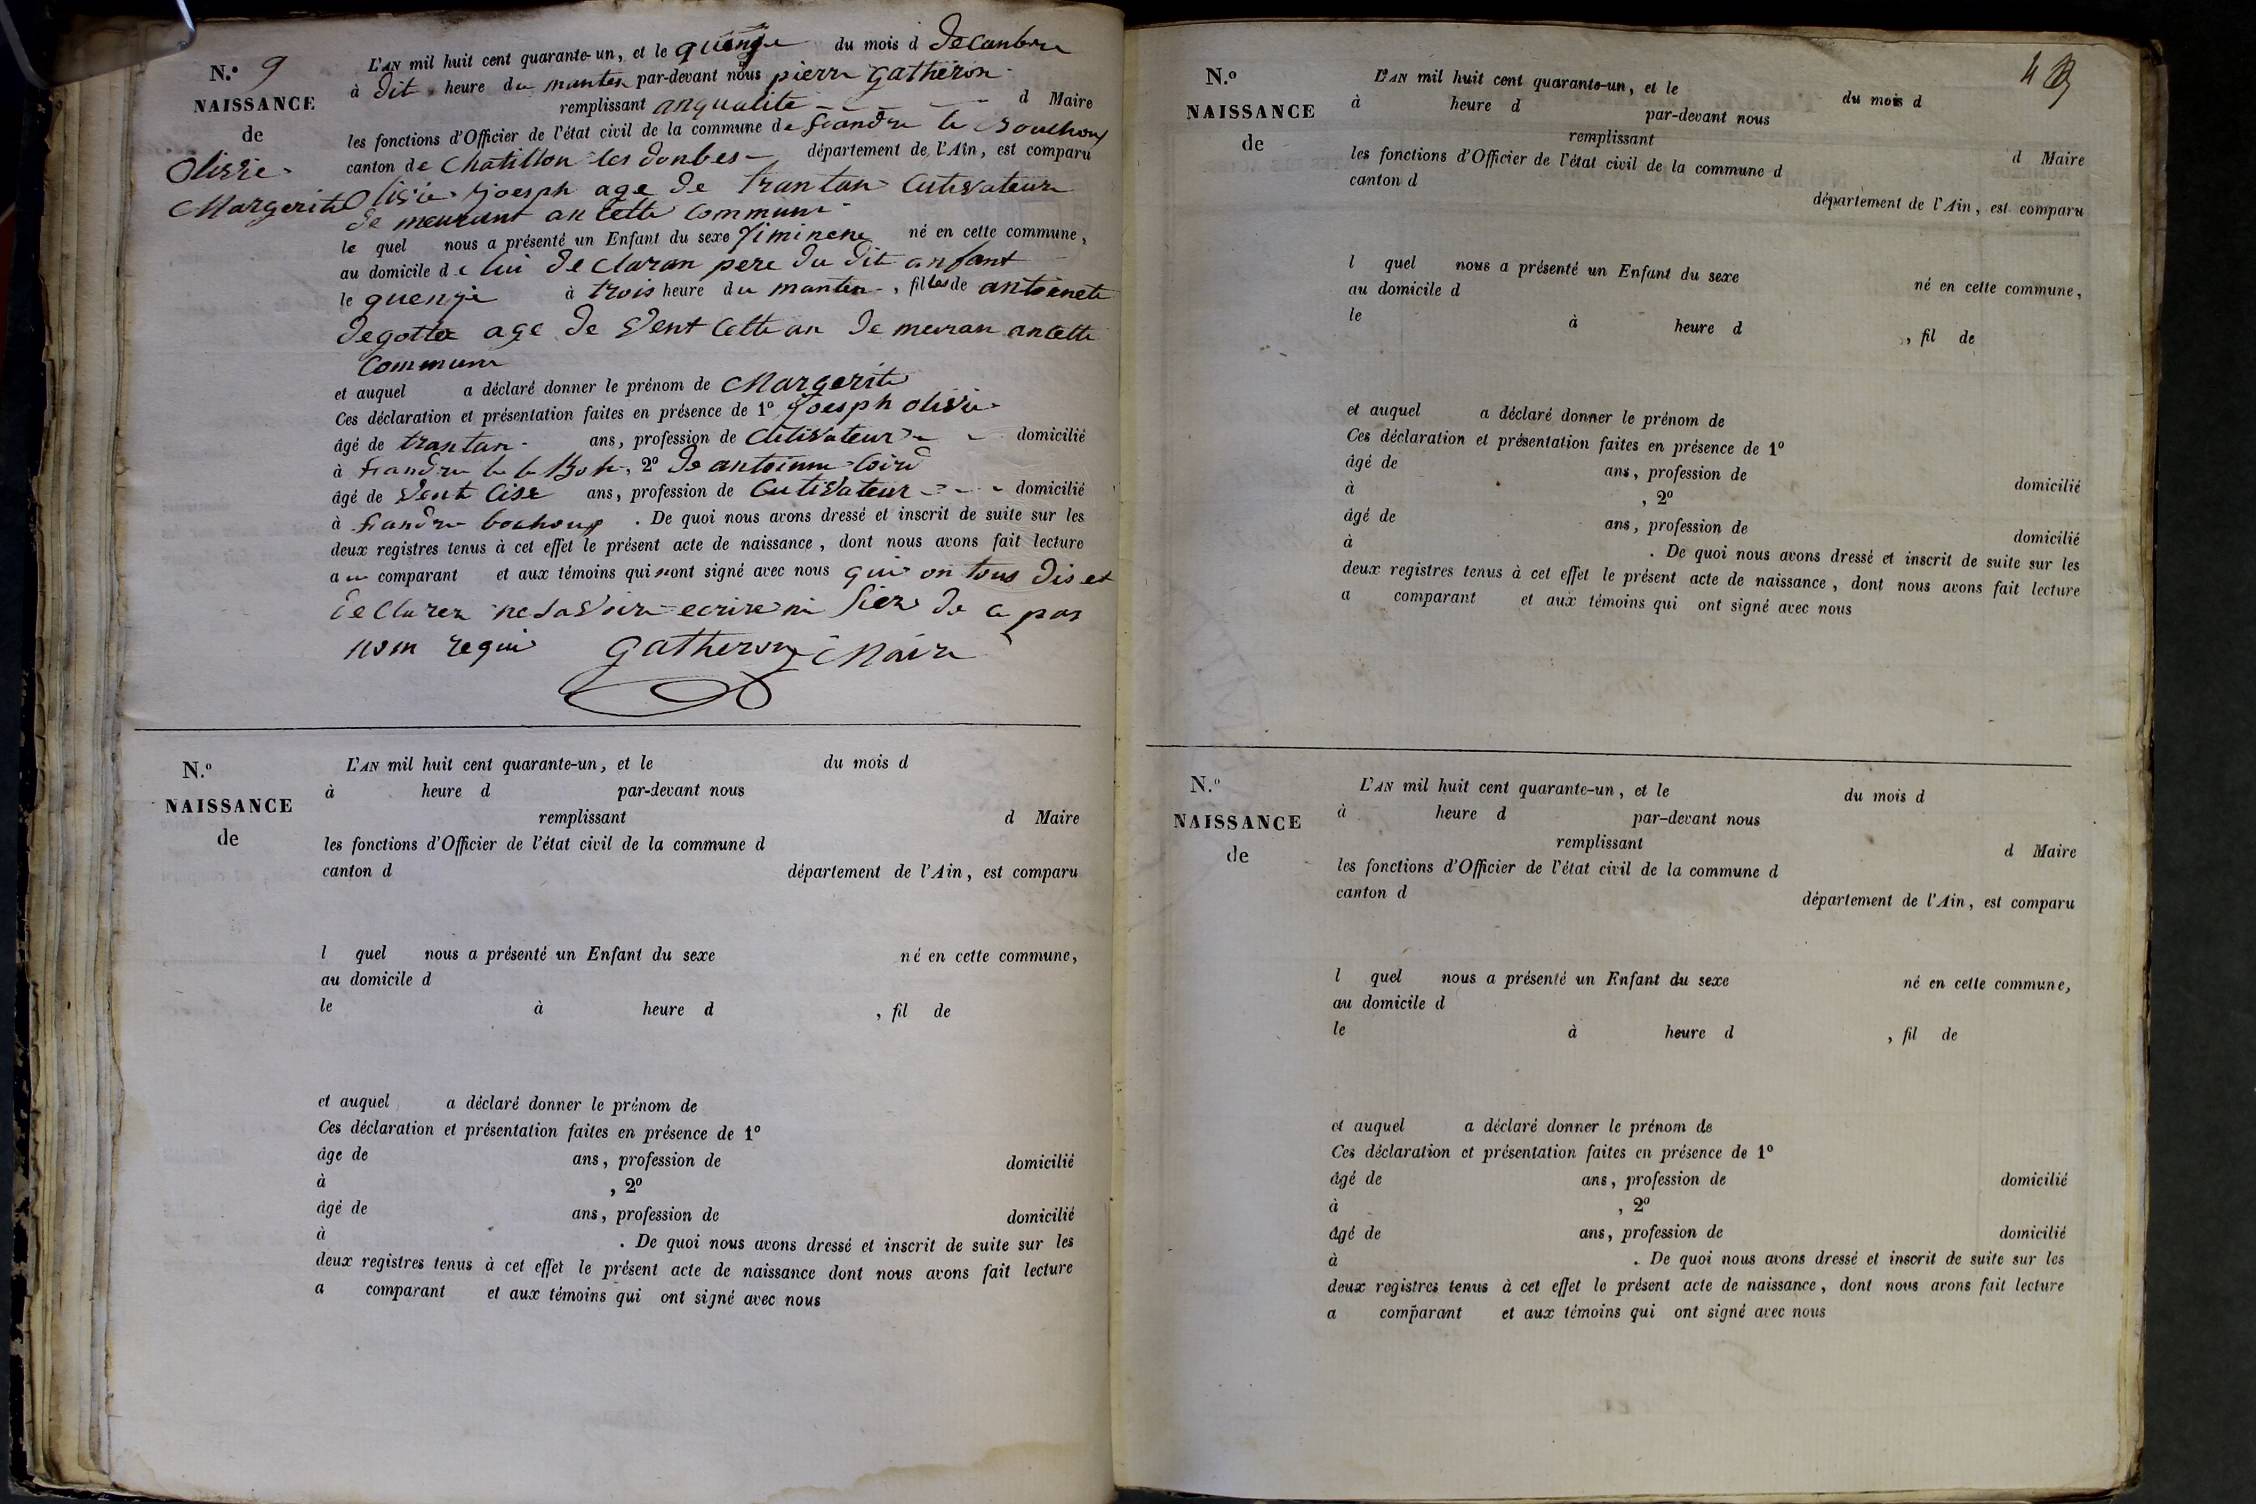 N.o 9
NAISSANCE
de
Olivie
Margerite
L'AN mil huit cent quarante-un, et le quenze du mois d Decanbre
à dit heure du manten par-devant nous pierre gatheron
remplissant anqualite d Maire
les fonctions d'Officier de l'état civil de la commune de
canton de Chatillon les donbes département de l'Ain, est comparu
Olivie joesph age de trantan Cutivateur
de meurant an Cette Commune
le quel nous a présenté un Enfant du sexe né en cette commune,
au domicile de lui de Claran pere du dit anfant
le quenze à trois heure du manten, filles de antoinete
degotte age de vent Cette an de meuran ancette
Commune
et auquel a déclaré donner le prénom de Margerite
Ces déclaration et présentation faites en présence de 1o joesph olivie
âgé de trantan ans, profession de domicilié
à , 2o de antoinne
âgé de vent Cise ans, profession de Cutivateur domicilié
à . De quoi nous avons dressé et inscrit de suite sur les
deux registres tenus à cet effet le présent acte de naissance, dont nous avons fait lecture
au comparant et aux témoins qui nont signé avec nous qui on tous dis et
declarez ne savoir ecrire ni de
nom requi gatheron Maire
N.o
NAISSANCE
de
L'AN mil huit cent quarante-un, et le du mois d
à heure d par-devant nous
remplissant d Maire
les fonctions d'Officier de l'état civil de la commune d
canton d département de l'Ain, est comparu
l quel nous a présenté un Enfant du sexe né en cette commune,
au domicile d
le à heure d , fil de
et auquel a déclaré donner le prénom de
Ces déclaration et présentation faites en présence de 1o
âge de ans, profession de domicilié
à , 2o
âgé de ans, profession de domicilié
à . De quoi nous avons dressé et inscrit de suite sur les
deux registres tenus à cet effet le présent acte de naissance dont nous avons fait lecture
a comparant et aux témoins qui ont signé avec nous
N.o
NAISSANCE
de
L'AN mil huit cent quarante-un, et le du mois d
à heure d par-devant nous
remplissant d Maire
les fonctions d'Officier de l'état civil de la commune d
canton d département de l'Ain, est comparu
l quel nous a présenté un Enfant du sexe né en cette commune,
au domicile d
le à heure d , fil de
et auquel a déclaré donner le prénom de
Ces déclaration et présentation faites en présence de 1o
âgé de ans, profession de domicilié
à , 2o
âgé de ans, profession de domicilié
à . De quoi nous avons dressé et inscrit de suite sur les
deux registres tenus à cet effet le présent acte de naissance, dont nous avons fait lecture
a comparant et aux témoins qui ont signé avec nous
N.o
NAISSANCE
de
L'AN mil huit cent quarante-un, et le du mois d
à heure d par-devant nous
remplissant d Maire
les fonctions d'Officier de l'état civil de la commune d
canton d département de l'Ain, est comparu
l quel nous a présenté un Enfant du sexe né en cette commune,
au domicile d
le à heure d , fil de
et auquel a déclaré donner le prénom de
Ces déclaration et présentation faites en présence de 1o
âgé de ans, profession de domicilié
à , 2o
âgé de ans, profession de domicilié
à . De quoi nous avons dressé et inscrit de suite sur les
deux registres tenus à cet effet le présent acte de naissance, dont nous avons fait lecture
a comparant et aux témoins qui ont signé avec nous